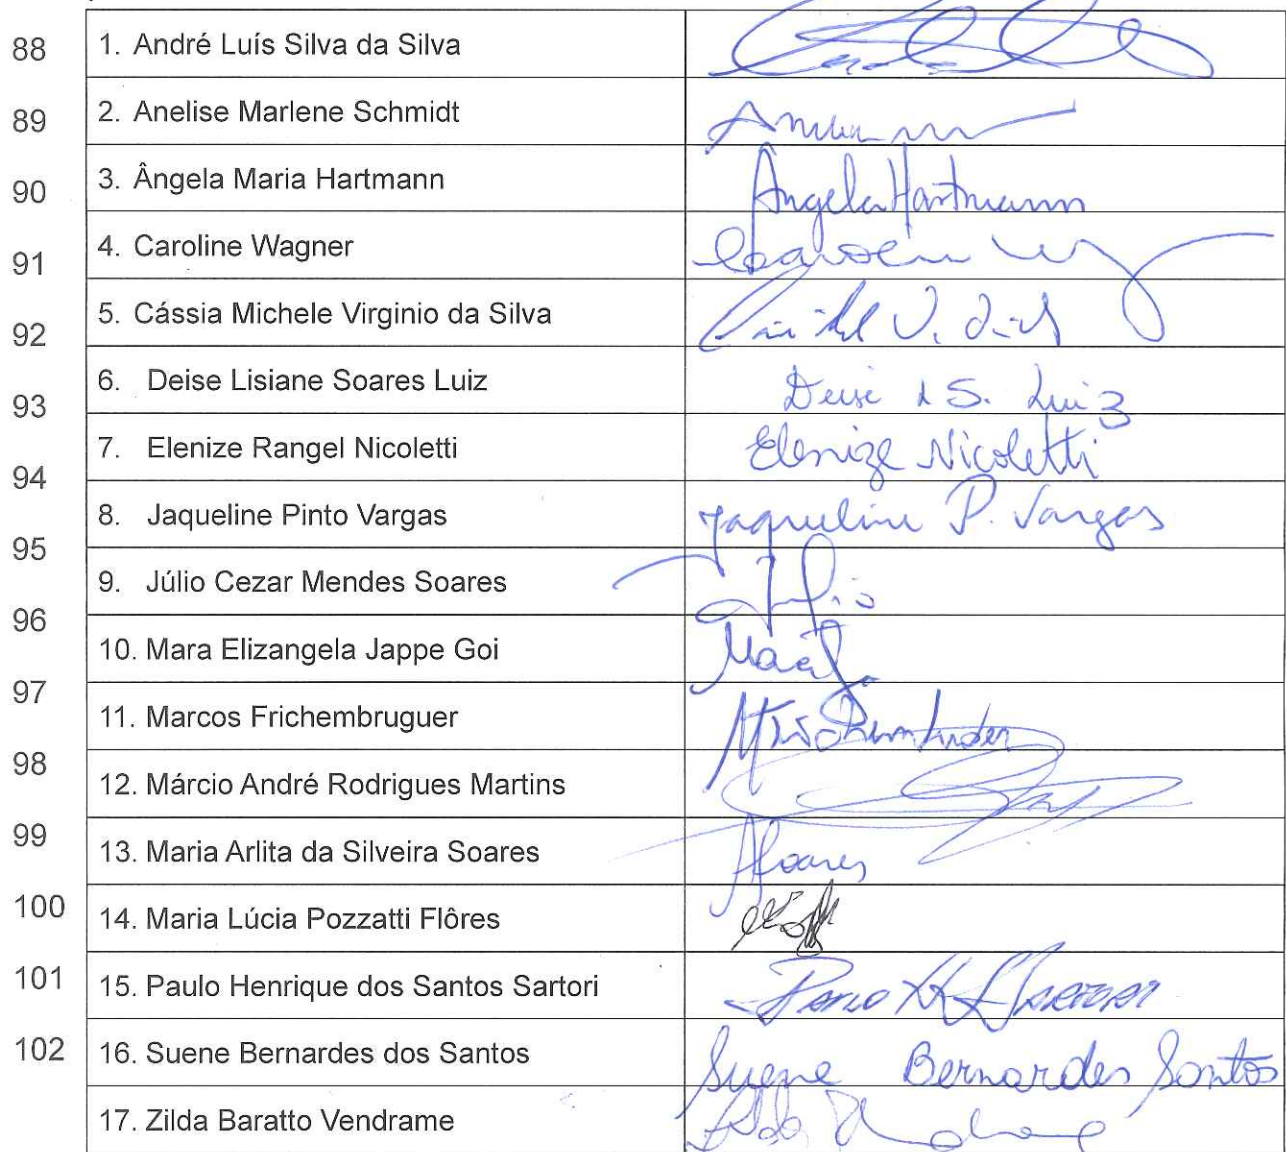 88
1. André Luís Silva da Silva
89
2. Anelise Marlene Schmidt
90
3. Ângela Maria Hartmann Ângela Hartmann
91
4. Caroline Wagner
92
5. Cássia Michele Virginio da Silva
93
6. Deise Lisiane Soares Luiz Deise L S. Luiz
94
7. Elenize Rangel Nicoletti Elenize Nicoletti
8. Jaqueline Pinto Vargas Jaqueline P. Vargas
95
9. Júlio Cezar Mendes Soares Júlio
96
10. Mara Elizangela Jappe Goi
97
11. Marcos Frichembruguer
98
12. Márcio André Rodrigues Martins
99
13. Maria Arlita da Silveira Soares
100
14. Maria Lúcia Pozzatti Flôres
101
15. Paulo Henrique dos Santos Sartori Paulo H Sartori
102
16. Suene Bernardes dos Santos Suene Bernardes Santos
17. Zilda Baratto Vendrame